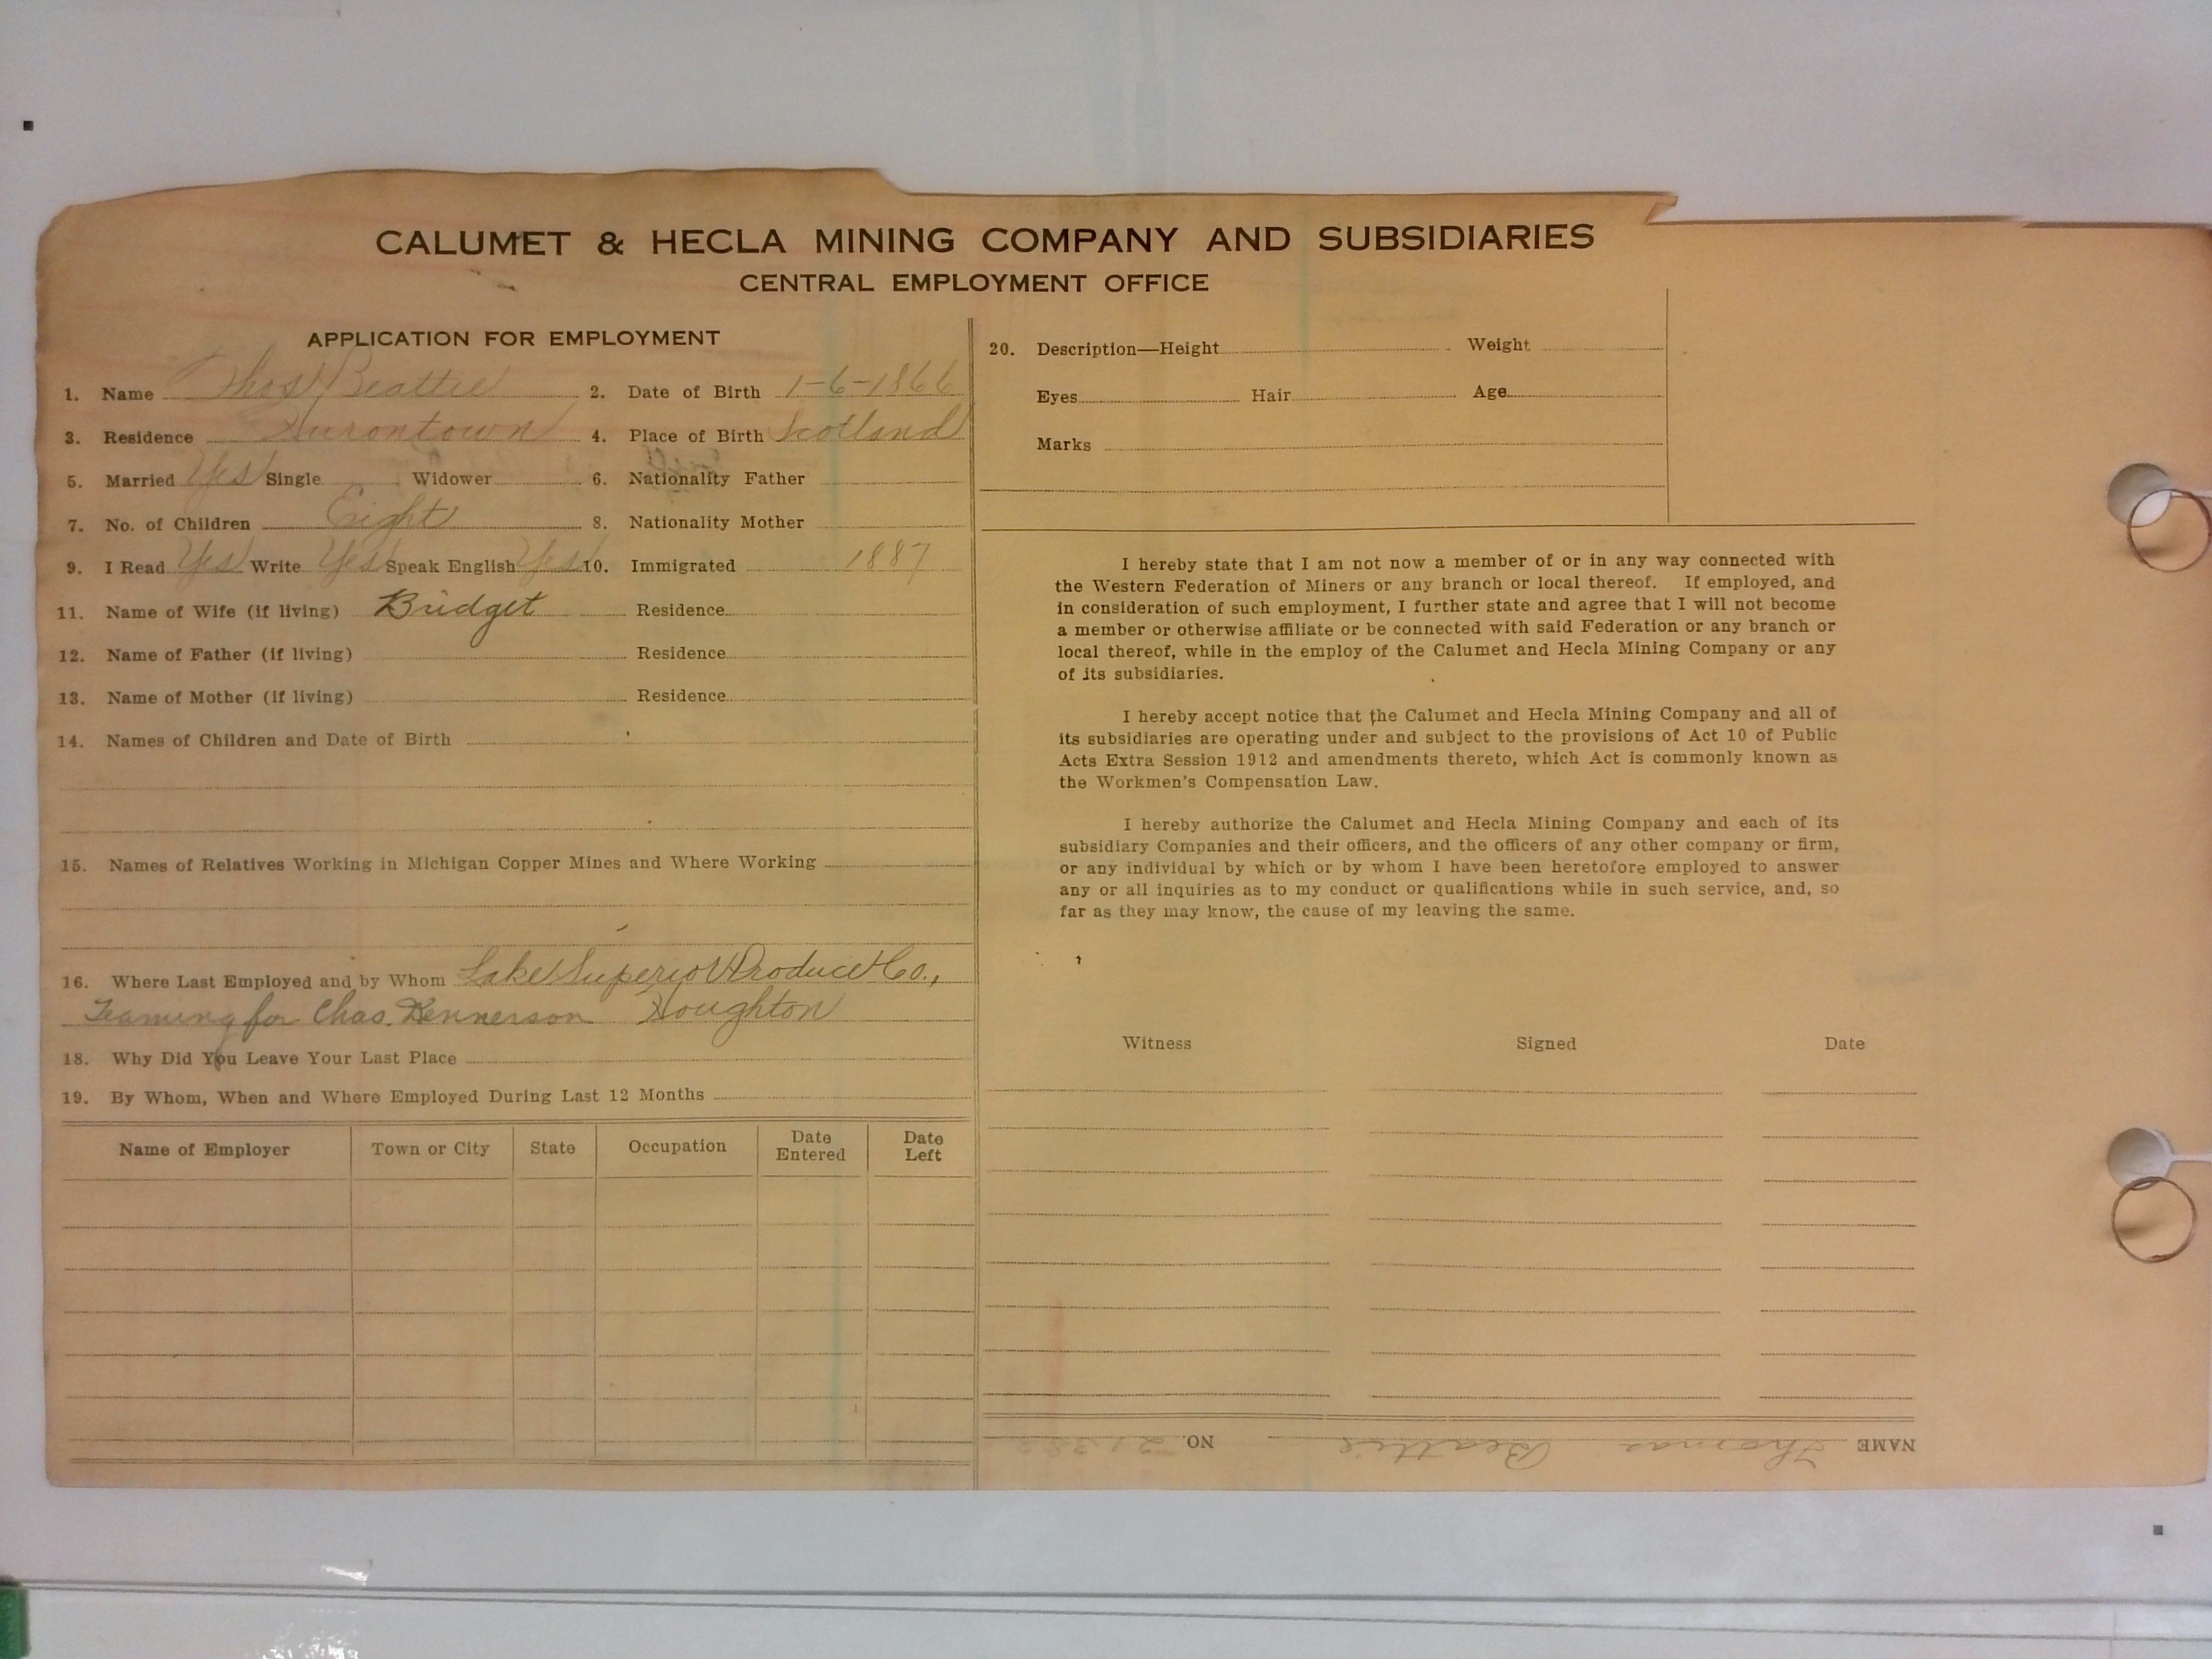 CALUMET & HECLA MINING COMPANY AND SUBSIDIARIES
CENTRAL EMPLOYMENT OFFICE
APPLICATION FOR EMPLOYMENT
1. Name Thos Beattie 2. Date of Birth 1-6-1866
3. Residence Hurontown 4. Place of Birth Scotland
5. Married Yes Single Widower 6. Nationality Father
7. No. of Children Eight 8. Nationality Mother
9. I Read Yes Write Yes Speak English Yes 10. Immigrated 1887
11. Name of Wife (if living) Bridget Residence
12. Name of Father (if living) Residence
13. Name of Mother (if living) Residence
14. Names of Children and Date of Birth
15. Names of Relatives Working in Michigan Copper Mines and Where Working
16. Where Last Employed and by Whom Lake Superior Produce Co.,
Teaming for Chas. Rennerson Houghton
18. Why Did You Leave Your Last Place
19. By Whom, When and Where Employed During Last 12 Months
Name of Employer Town or City State Occupation Date Entered Date Left
20. Description—Height Weight
Eyes Hair Age
Marks
I hereby state that I am not now a member of or in any way connected with
the Western Federation of Miners or any branch or local thereof. If employed, and
in consideration of such employment, I further state and agree that I will not become
a member or otherwise affiliate or be connected with said Federation or any branch or
local thereof, while in the employ of the Calumet and Hecla Mining Company or any
of its subsidiaries.
I hereby accept notice that the Calumet and Hecla Mining Company and all of
its subsidiaries are operating under and subject to the provisions of Act 10 of Public
Acts Extra Session 1912 and amendments thereto, which Act is commonly known as
the Workmen's Compensation Law.
I hereby authorize the Calumet and Hecla Mining Company and each of its
subsidiary Companies and their officers, and the officers of any other company or firm,
or any individual by which or by whom I have been heretofore employed to answer
any or all inquiries as to my conduct or qualifications while in such service, and, so
far as they may know, the cause of my leaving the same.
Witness Signed Date
NAME Thomas Beattie NO.